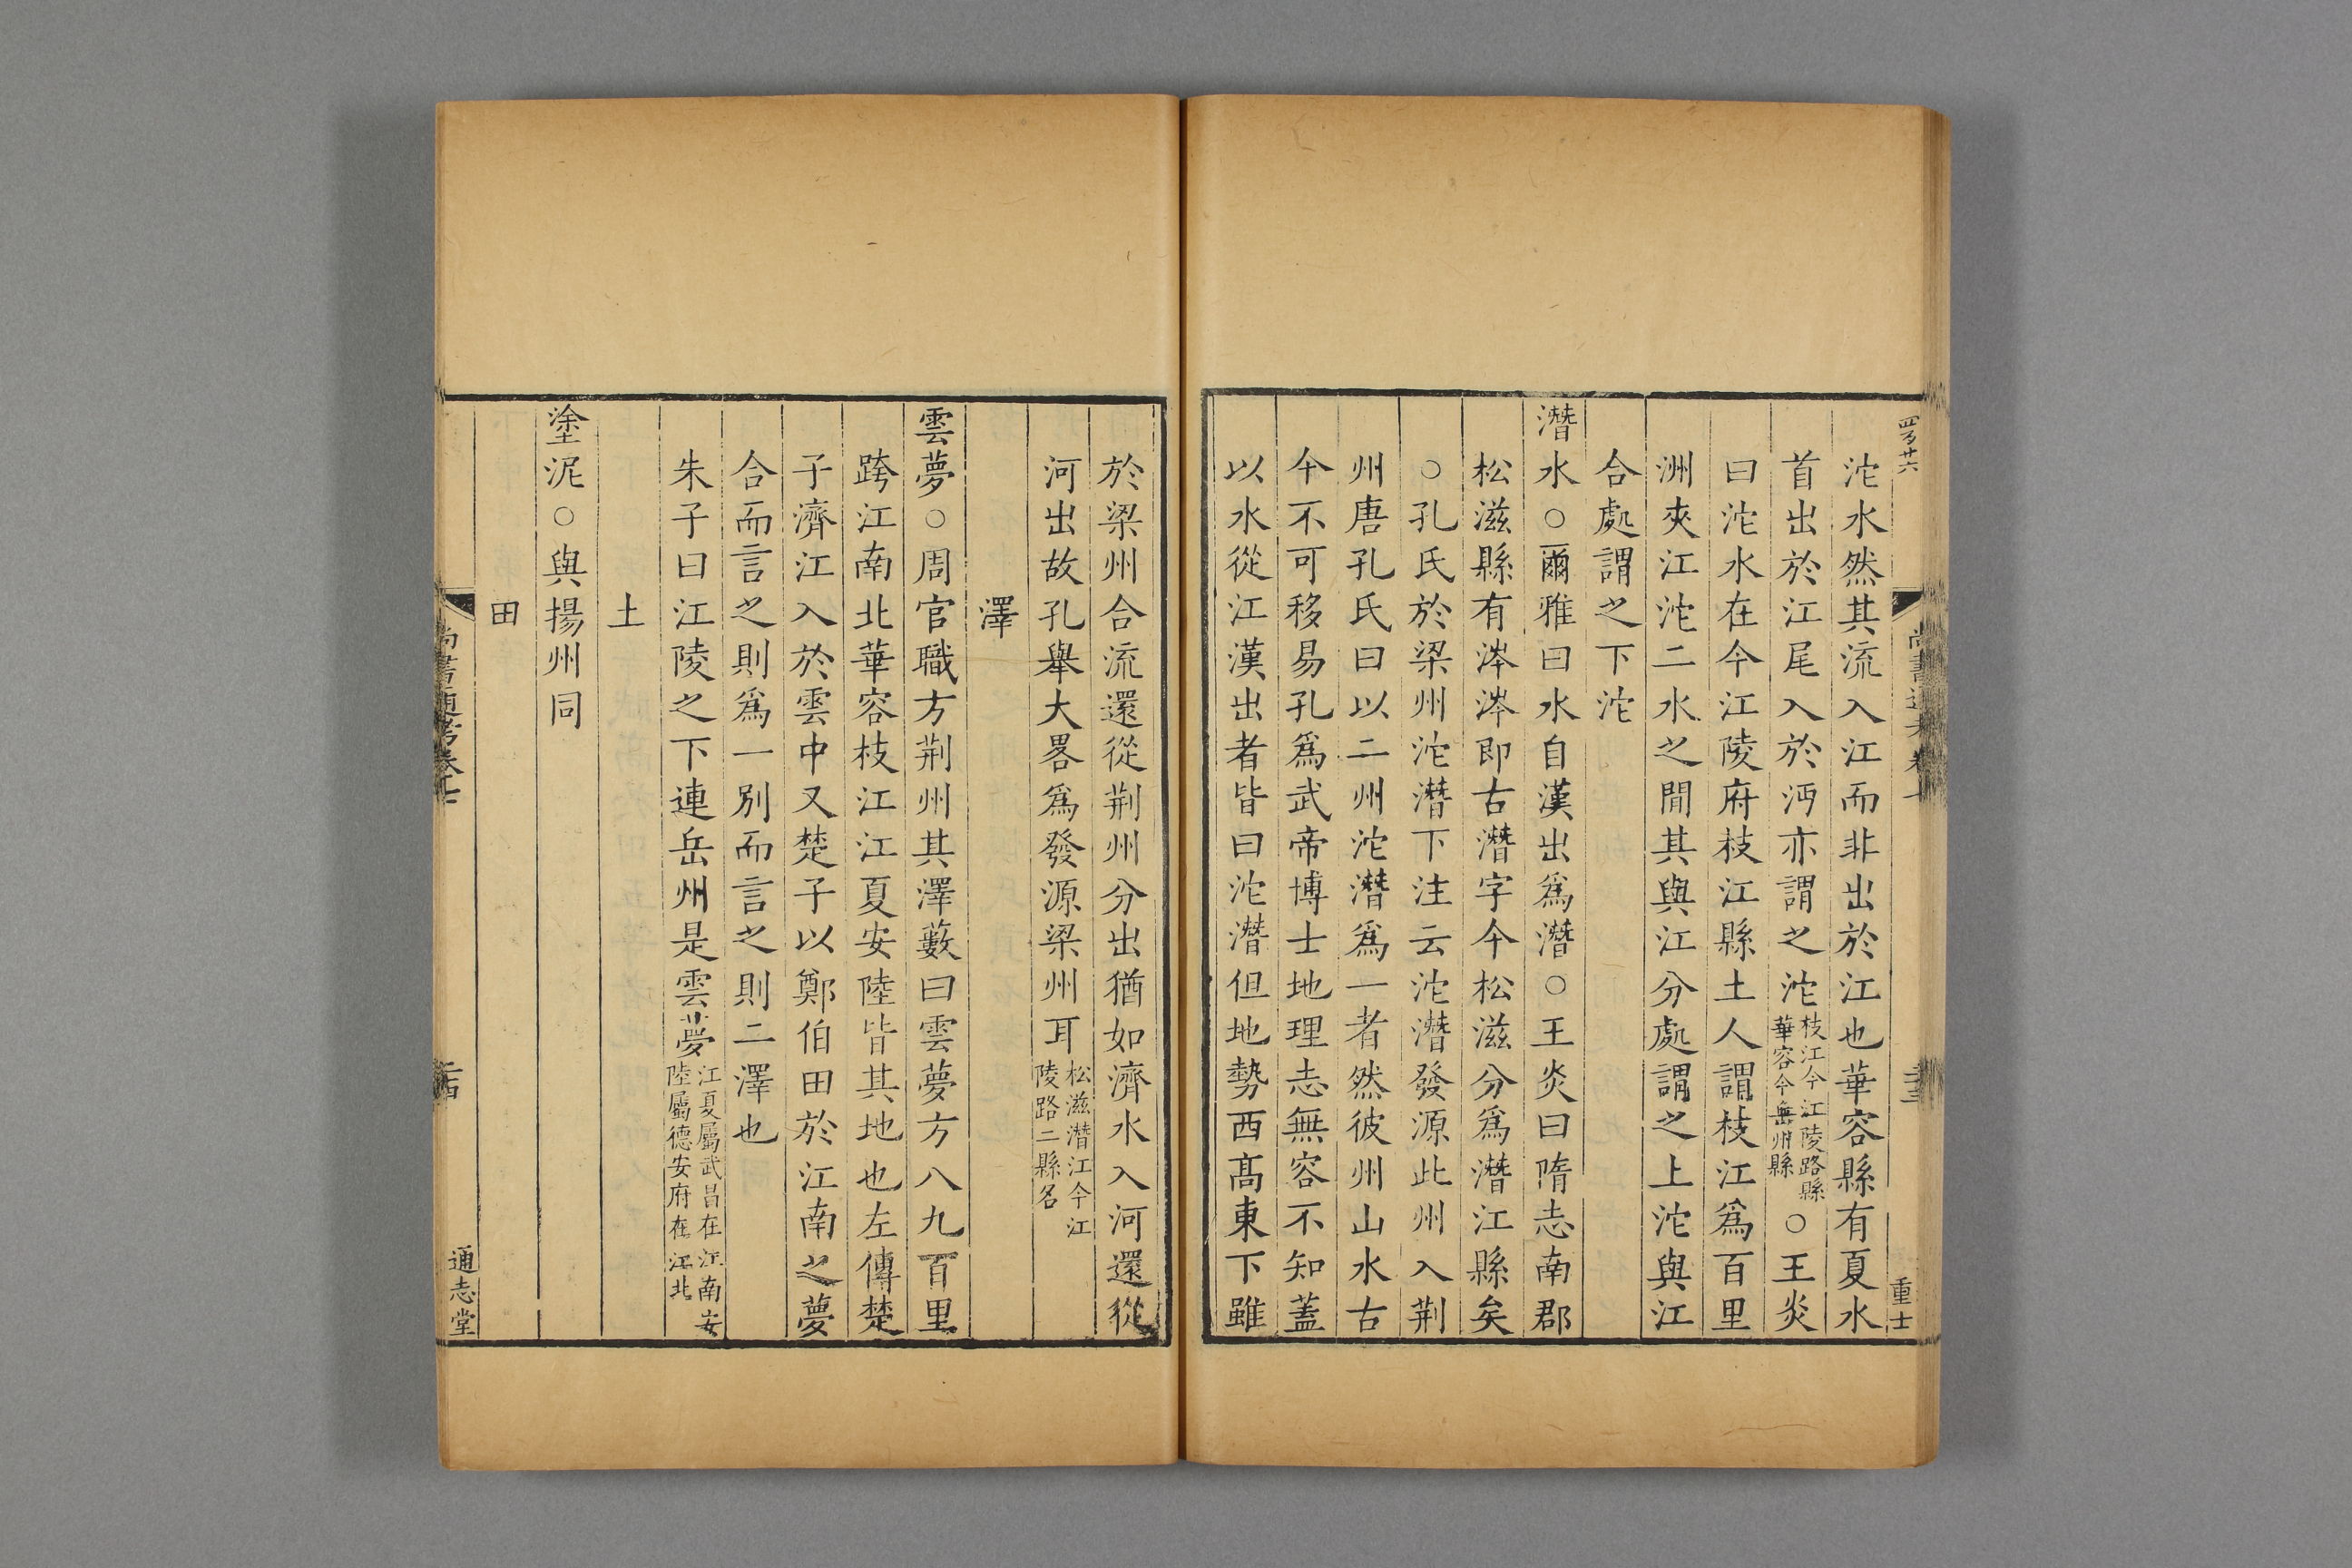 沱水然其流入江而非出於江也華容縣有夏水
首出於江尾入於沔亦謂之沱枝江今江陵路縣華容今岳州縣○王炎
曰沱水在今江陵府枝江縣土人謂枝江爲百里
洲夾江沱二水之閒其與江分處謂之上沱與江
合處謂之下沱
潛水○爾雅曰水自漢出爲潛○王炎曰隋志南郡
松滋縣有涔涔即古潛字今松滋分爲潛江縣矣
○孔氏於梁州沱潛下注云沱潛發源此州入荆
州唐孔氏曰以二州沱潛爲一者然彼州山水古
今不可移易孔爲武帝博士地理志無容不知蓋
以水從江漢出者皆曰沱潛但地勢西髙東下雖
重士
於梁州合流還從荆州分出猶如濟水入河還從
河出故孔舉大畧爲發源梁州耳松滋潛江今江陵路二縣名
澤
雲夢○周官職方荆州其澤藪曰雲夢方八九百里
跨江南北華容枝江江夏安陸皆其地也左傳楚
子濟江入於雲中又楚子以鄭伯田於江南之夢
合而言之則爲一別而言之則二澤也
朱子曰江陵之下連岳州是雲夢江夏屬武昌在江南安陸屬德安府在江北
土
塗泥○與揚州同
田
尚書通考卷七
通志堂